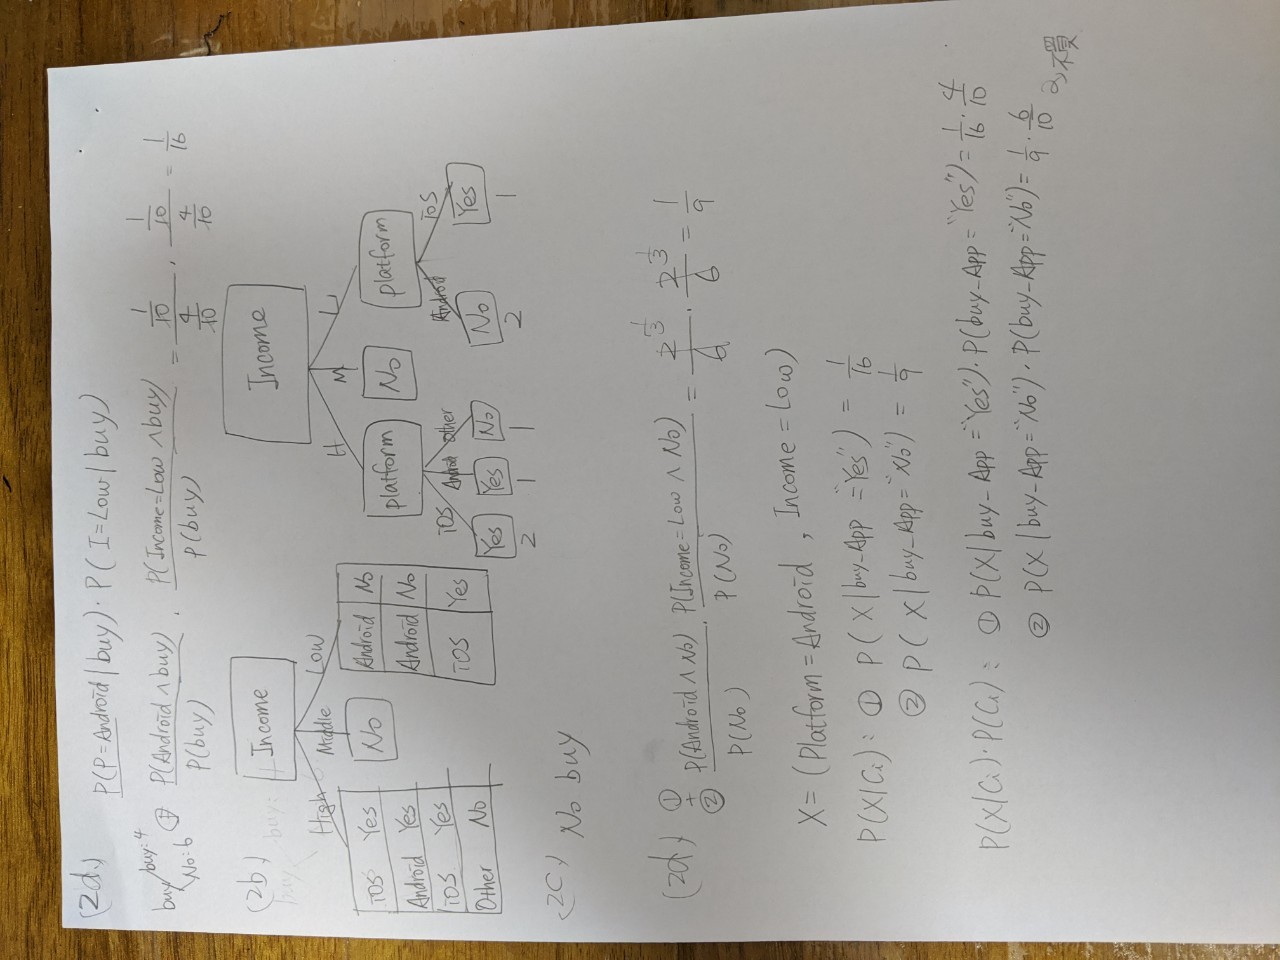 (2d.)
P(P=Android | buy) · P( I=Low | buy)
buy buy:4
No:6
① P(Android ∧ buy) / P(buy) · P(Income=Low ∧ buy) / P(buy) = 1/10 / 4/10 · 1/10 / 4/10 = 1/16
(2b.)
Income
High Middle Low
iOS Yes
Android Yes
iOS Yes
Other No
No
Android No
Android No
iOS Yes
Income
H M L
platform No platform
iOS Android Other Android iOS
Yes Yes No No Yes
2 1 1 2 1
(2C.) No buy
(2d.) ① + ② P(Android ∧ No) / P(No) · P(Income=Low ∧ No) / P(No) = 2/6 1/3 · 2/6 1/3 = 1/9
X = (Platform=Android , Income=Low)
P(X|Ci) : ① P( X | buy_App ="Yes") = 1/16
② P( X | buy_App="No") = 1/9
P(X|Ci)·P(Ci) : ① P(X | buy_App ="Yes")·P(buy_App="Yes")= 1/16 · 4/10
② P(X | buy_App="No")·P(buy_App="No")= 1/9 · 6/10
不買